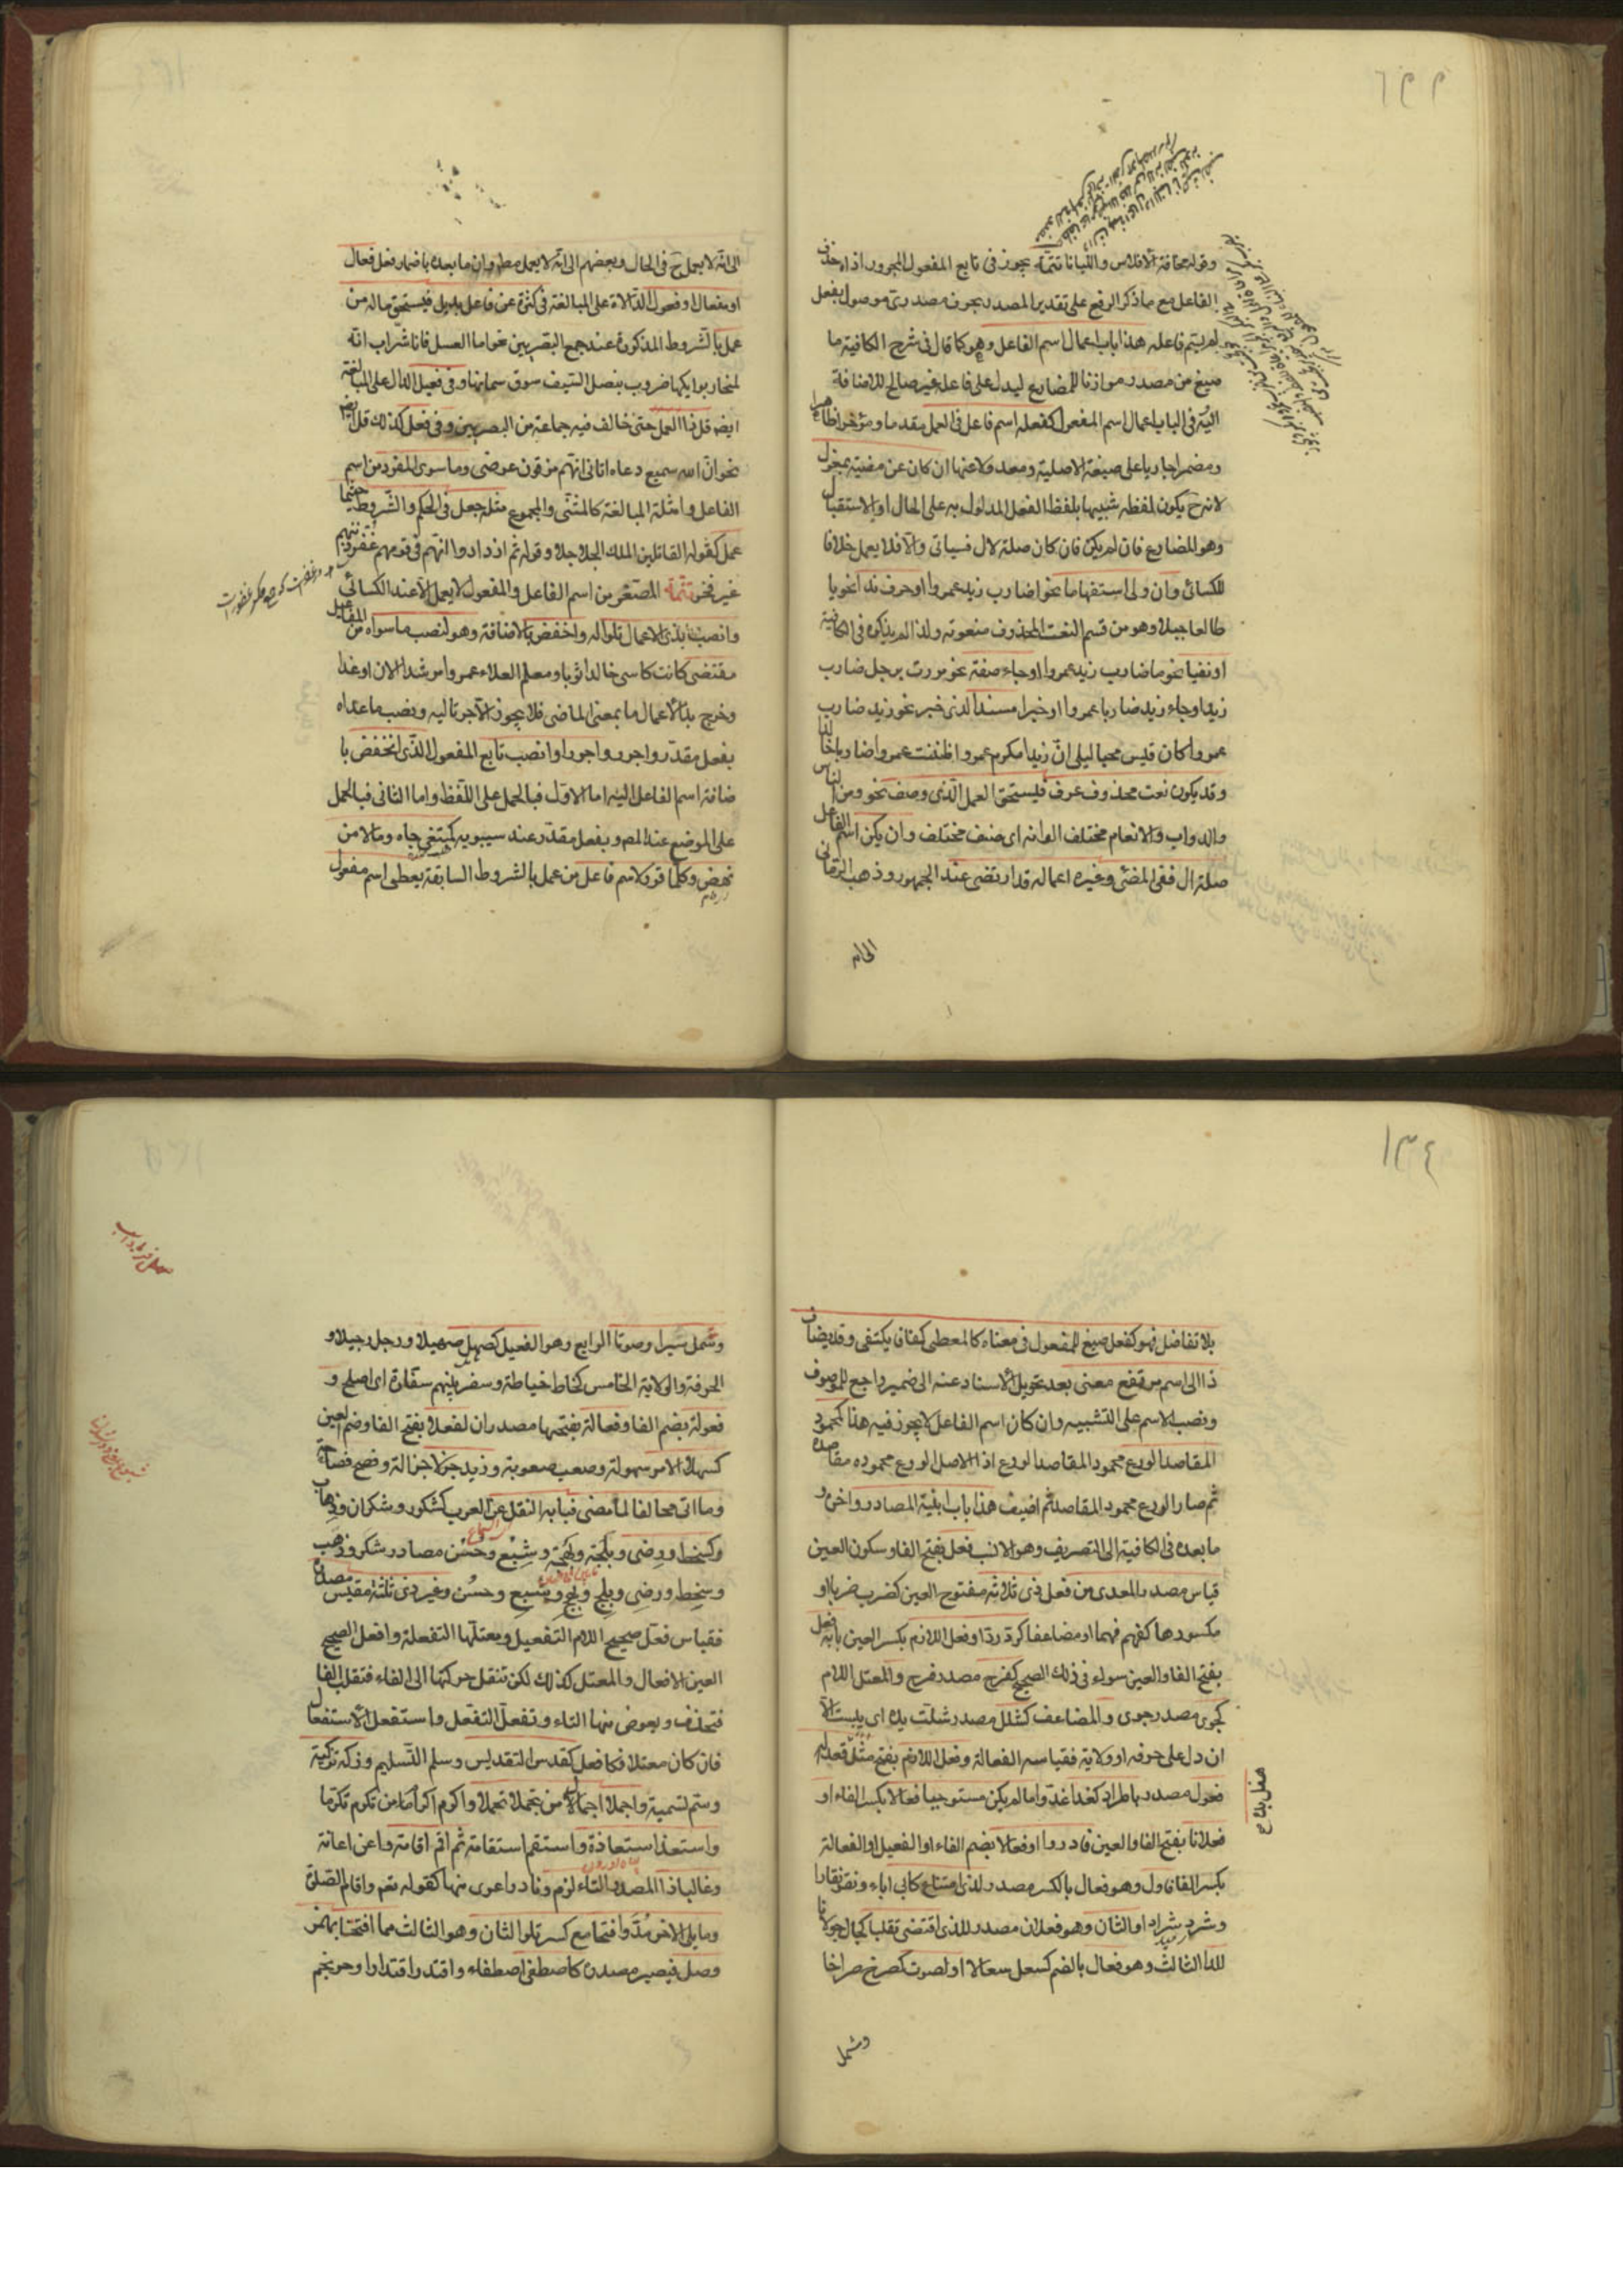 وقوله مخافة الافلاس والليانا تتمة يجوز فى تابع المفعول المجرور اذا حذف
الفاعل مع ما ذكر الرفع على تقدير المصدر بحرف مصدرى موصول بفعل
لم يسم فاعله هذا باب اعمال اسم الفاعل وهو كما قال فى شرح الكافية ما
صيغ من مصدر موازنا للمضارع ليدل على فاعله غير صالح للاضافة
اليه فى الباب اعمال اسم المفعول كفعله اسم فاعل فى العمل مقدما ومؤخرا ظاهرا
ومضمرا جاريا على صيغة الاصلية ومعدولا عنها ان كان عن مضيه بمعزل
لانه ح يكون لفظه شبيها بلفظ الفعل المدلول به على الحال او الاستقبال
وهو المضارع فان لم يكن فان كان صلة لال فسياتى والا فلا يعمل خلافا
للكسائى وان ولى استفهاما نحو اضارب زيد عمروا او حرف ندا نحو يا
طالعا جبلا وهو من قسم النعت المحذوف منعوته ولذا لم يذكره فى الكافية
او نفيا نحو ما ضارب زيد عمروا او جاء صفة نحو مررت برجل ضارب
زيدا وجاء زيد ضاربا عمروا او خبرا مسندا لذى خبر نحو زيد ضارب
عمروا كان قيس محبا ليلى ان زيدا مكرم عمروا ظننت عمروا ضاربا خالدا
وقد يكون نعت محذوف عرف فيستحق العمل الذى وصف نحو ومن الناس
والدواب والانعام مختلف الوانه اى صنف مختلف وان يكن اسم الفاعل
صلة ال ففى المضى وغيره اعماله قد ارتضى عند الجمهور وذهب الرمانى
الى انه لا يعمل ح فى الحال وبعضهم الى انه لا يعمل مطـ وان ما بعده باضمار فعل فعال
او مفعال او فعول الدالة على المبالغة فى كثرة عن فاعل بديل فيستحق ماله من
عمل بالشروط المذكورة عند جمع البصريين نحو اما العسل فانا شراب انه
لمنحار بوايكها ضروب بنصل السيف سوق سمانها وفى فعيل الدال على المبالغة
ايضا قل ذا العمل حتى خالف فيه جماعة من البصريين وفى فعل كذلك قل ايضا
نحو ان الله سميع دعاه اتانى انهم مزقون عرضى وما سوى المفرد من اسم
الفاعل وامثلة المبالغة كالمثنى والمجموع مثله جعل فى الحكم والشروط حيثما
عمل كقوله القاتلين الملك الحلاحلا وقوله ثم ازدادوا انهم فى قومهم غفر ذنبهم
غير فخر تتمة المصغر من اسم الفاعل والمفعول لا يعمل الا عند الكسائى
وانصب بذى الاعمال تلوا له واخفض بالاضافة وهو لنصب ما سواه من المفاعيل
مقتضى كانت كاسى خالدا ثوبا ومعلم العلاء عمروا مرشدا الان او غدا
وخرج بذى الاعمال ما بمعنى الماضى فلا يجوز الا جر تاليه ونصب ما عداه
بفعل مقدر واجرر واجرر او انصب تابع المفعول الذى انخفض با
ضافة اسم الفاعل اليه اما الاول فبالحمل على اللفظ واما الثانى فبالحمل
على الموضع عند المصـ وبفعل مقدر عند سيبويه كمبتغى جاه ومالا من
نهض وكلما قرر لاسم فاعل من عمل بالشروط السابقة يعطى اسم مفعول
١٣٤
بلا تفاضل فهو كفعل صيغ للمفعول فى معناه كالمعطى كفافا يكتفى وقد يضاف
ذا الى اسم مرتفع معنى بعد تحويل الاسناد عنه الى ضمير راجع للموصوف
ونصب الاسم على التشبيه وان كان اسم الفاعل لا يجوز فيه هذا كمحمود
المقاصد الورع محمود المقاصد الورع اذ الاصل الورع محموده مقاصده
ثم صار الورع محمود المقاصد ثم اضيف هذا باب ابنية المصادر واخره و
ما بعده فى الكافية الى التصريف وهو الانسب فعل بفتح الفا وسكون العين
قياس مصدر المعدى من فعل ذى ثلاثة مفتوح العين كضرب ضربا او
مكسورها كفهم فهما او مضاعفا كرد ردا وفعل اللازم بكسر العين بابه فعل
بفتح الفا والعين سواء فى ذلك الصحيح كفرح مصدر فرح والمعتل اللام
كجوى مصدر جوى والمضاعف كشلل مصدر شلت يده اى يبست الا
ان دل على حرفة او ولاية فقياسه الفعالة وفعل اللازم بفتح مثل قعد له
فعول مصدر باطراد كغدا غدوا ما لم يكن مستوجبا فعالا بكسر الفاء او
فعلانا بفتح الفا والعين فادر او فعالا بضم الفاء او الفعيل او الفعالة
بكسر الفا فاول وهو فعال بالكسر مصدر لذى امتناع كابى اباء ونفر نفارا
وشرد شرادا والثان وهو فعلان مصدر للذى اقتضى تقلبا كجال جولانا
للدا الثالث وهو فعال بالضم كسعل سعالا او لصوت كصرخ صراخا
وشمل
وشمل سيرا وصوتا الرابع وهو الفعيل كصهل صهيلا ورحل رحيلا و
الحرفة والولاية الخامس كخاط خياطة وسفر بينهم سفارة اى اصلح و
فعولة بضم الفا وفعالة بفتحها مصدران لفعل بفتح الفا وضم العين
كسهل الامر سهولة وصعب صعوبة وزيد جزل جزالة وفصح فصاحة
وما اتى مخالفا لما مضى فبابه النقل عن العرب كشكور وشكران وذهاب
وكسخط ورضى وبلجة وبهجة وشبع وحسن مصادر شكر وذهب
وسخط ورضى وبلج وبهج وشبع وحسن وغير ذى ثلثة مقيس مصدره
فقياس فعل صحيح اللام التفعيل ومعتلها التفعلة وافعل الصحيح
العين الافعال والمعتل كذلك لكن تنقل حركتها الى الفاء فتقلب الفا
فتحذف ويعوض منها التاء وتفعل التفعل واستفعل الاستفعال
فان كان معتلا فكافعل كقدس التقديس وسلم التسليم وزكه تزكية
وسم تسمية واجملا اجمال من تجملا تجملا واكرم اكراما من تكرم تكرما
واستعذ استعاذة واستقم استقامة ثم اقم اقامة واعن اعانة
وغالبا ذا المصدر التاء لزم ونادرا عرى منها كقوله تعم واقام الصلوة
وما يلى الاخر مد وافتحا مع كسر تلو الثان وهو الثالث مما افتتحا بهمز
وصل فيصير مصدره كاصطفى اصطفاء واقتدر اقتدارا واحرنجم